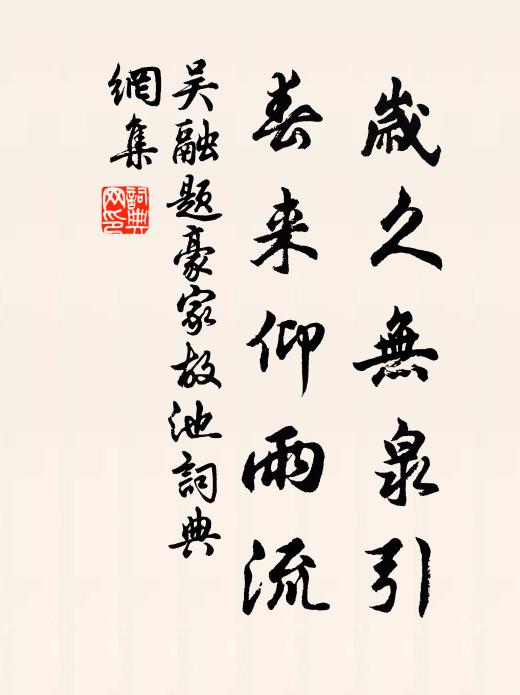 歲久無泉引
春来仰雨流
吴融题豪家故池詞典
網集
詞典
网印